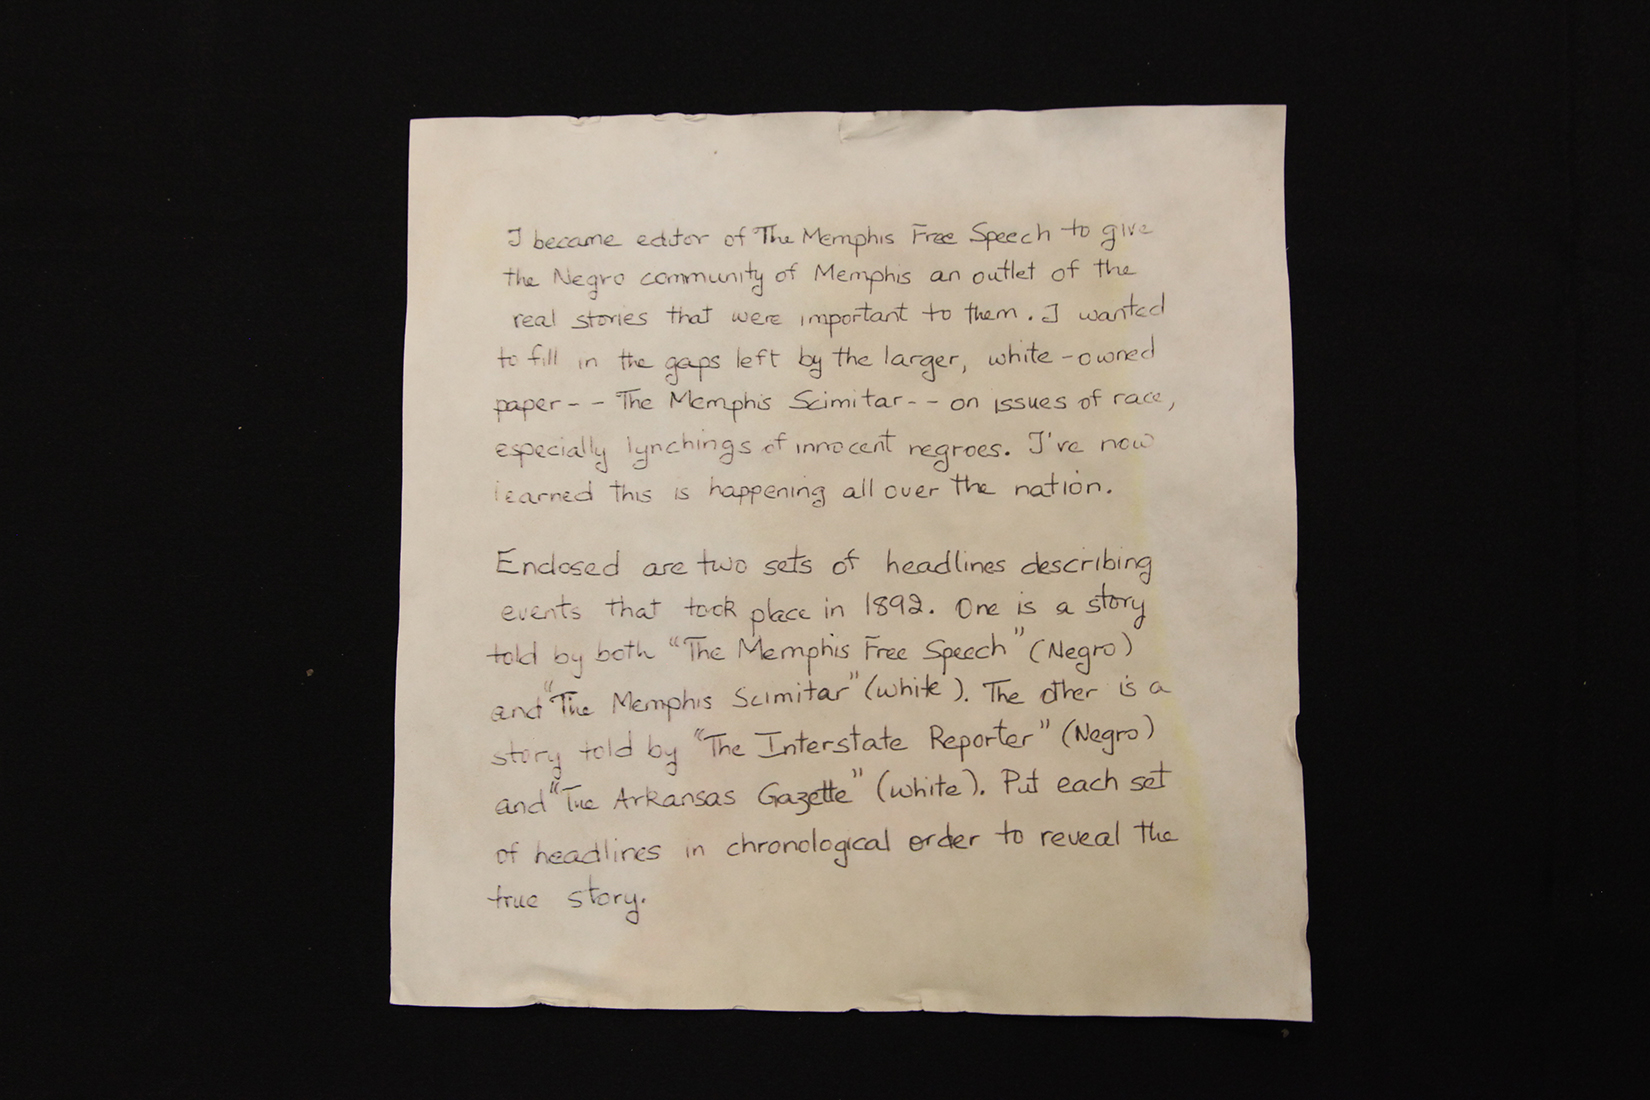 I became editor of The Memphis Free Speech to give
the Negro community of Memphis an outlet of the
real stories that were important to them. I wanted
to fill in the gaps left by the larger, white-owned
paper-- The Memphis Scimitar-- on issues of race,
especially lynchings of innocent negroes. I've now
learned this is happening all over the nation.
Enclosed are two sets of headlines describing
events that took place in 1892. One is a story
told by both "The Memphis Free Speech" (Negro)
and "The Memphis Scimitar" (white). The other is a
story told by "The Interstate Reporter" (Negro)
and "The Arkansas Gazette" (white). Put each set
of headlines in chronological order to reveal the
true story.